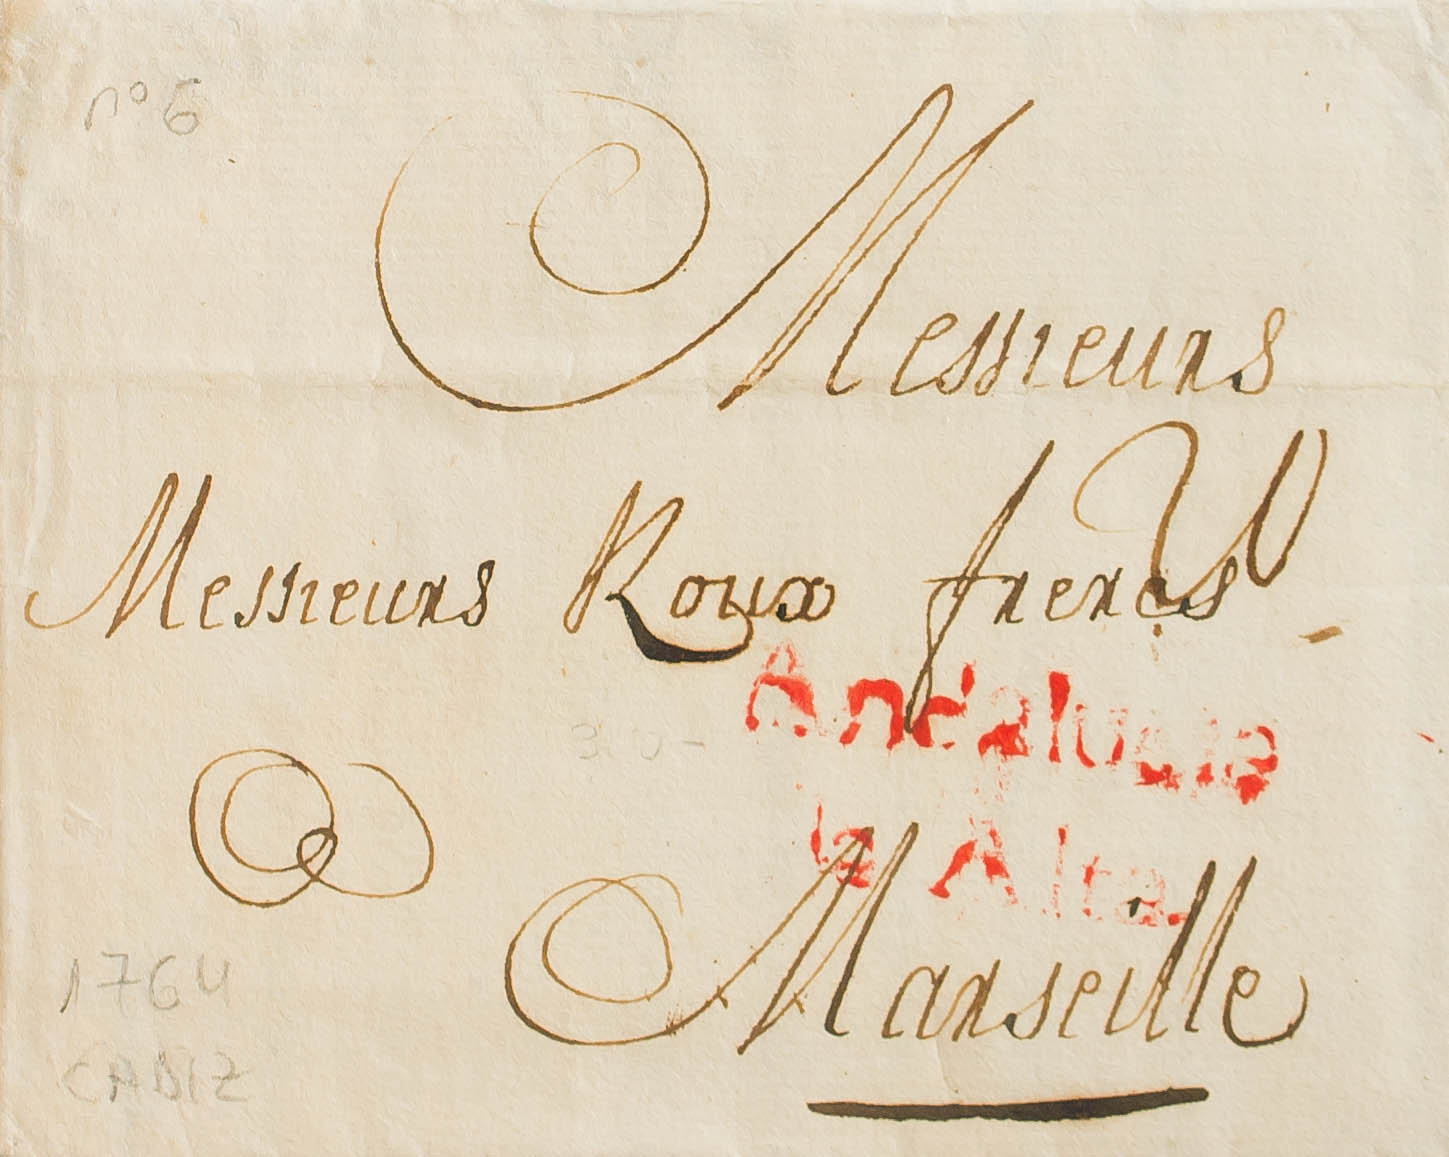 nº 6
Messieurs
Messieurs Roux freres
Andalucia
la Alta
Marseille
300-
1764
CADIZ